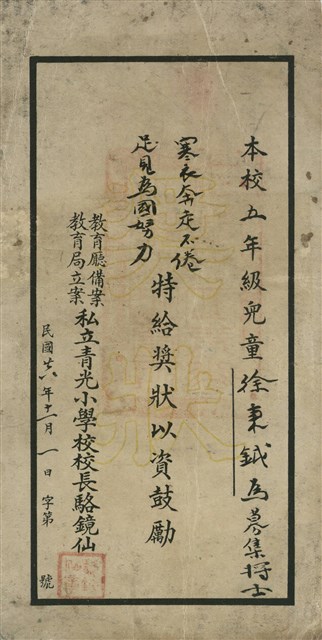 本校五年級兒童徐東鉞為募集將士
寒衣奔走不倦
足見為國努力
特給獎狀以資鼓勵
教育廳備案
教育局立案
私立青光小學校校長駱鏡仙
民國廿八年十二月一日 字第 號